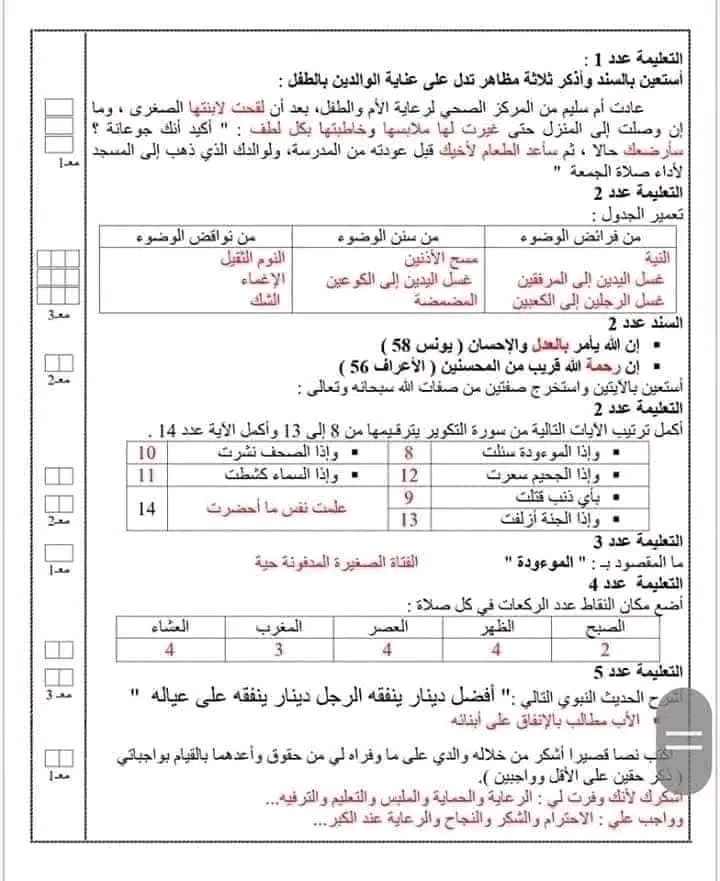 التعليمة عدد 1 :
أستعين بالسند وأذكر ثلاثة مظاهر تدل على عناية الوالدين بالطفل :
عادت أم سليم من المركز الصحي لرعاية الأم والطفل، بعد أن لقحت لابنتها الصغرى ، وما
إن وصلت إلى المنزل حتى غيرت لها ملابسها وخاطبتها بكل لطف : " أكيد أنك جوعانة ؟
سأرضعك حالا ، ثم سأعد الطعام لأخيك قبل عودته من المدرسة، ولوالدك الذي ذهب إلى المسجد
لأداء صلاة الجمعة "
معـ1
التعليمة عدد 2
تعمير الجدول :
من فرائض الوضوء من سنن الوضوء من نواقض الوضوء
النية مسح الأذنين النوم الثقيل
غسل اليدين إلى المرفقين غسل اليدين إلى الكوعين الإغماء
غسل الرجلين إلى الكعبين المضمضة الشك
معـ3
السند عدد 2
إن الله يأمر بالعدل والإحسان ( يونس 58 )
إن رحمة الله قريب من المحسنين ( الأعراف 56 )
معـ2
أستعين بالآيتين واستخرج صفتين من صفات الله سبحانه وتعالى :
التعليمة عدد 2
أكمل ترتيب الآيات التالية من سورة التكوير بترقيمها من 8 إلى 13 وأكمل الآية عدد 14 .
وإذا الموءودة سئلت 8 وإذا الصحف نشرت 10
وإذا الجحيم سعرت 12 وإذا السماء كشطت 11
بأي ذنب قتلت 9 علمت نفس ما أحضرت 14
وإذا الجنة أزلفت 13
معـ2
التعليمة عدد 3
ما المقصود بـ : " الموءودة " الفتاة الصغيرة المدفونة حية
معـ1
التعليمة عدد 4
أضع مكان النقاط عدد الركعات في كل صلاة :
الصبح الظهر العصر المغرب العشاء
2 4 4 3 4
التعليمة عدد 5
أشرح الحديث النبوي التالي :" أفضل دينار ينفقه الرجل دينار ينفقه على عياله "
معـ3
الأب مطالب بالإنفاق على أبنائه
أكتب نصا قصيرا أشكر من خلاله والدي على ما وفراه لي من حقوق وأعدهما بالقيام بواجباتي
( ذكر حقين على الأقل وواجبين ).
معـ1
أشكرك لأنك وفرت لي : الرعاية والحماية والملبس والتعليم والترفيه...
وواجب علي : الاحترام والشكر والنجاح والرعاية عند الكبر...